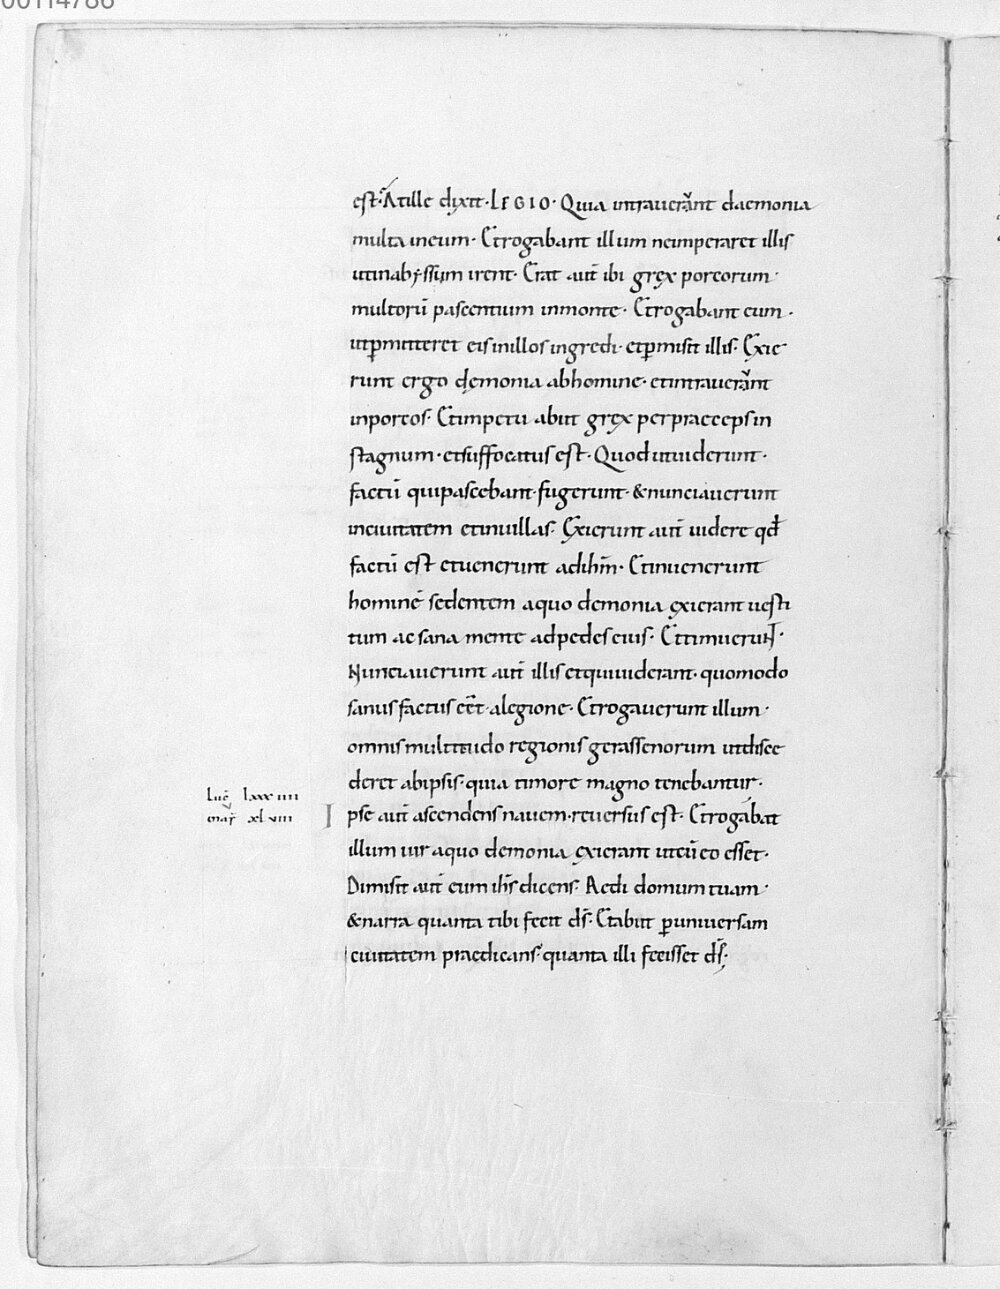 00114786
est. Atille dixit. LEGIO. Quia intrauerant daemonia
multa ineum. Etrogabant illum neimperaret illis
utinabyssum irent. Erat aut̄ ibi gręx porcorum.
multorū pascentium inmonte. Etrogabant eum.
utp̄mitteret eisinillos ingredi. etp̄misit illis. Exie
runt ergo dęmonia abhomine. etintrauerant
inporcos. Etimpetu abiit gręx perpraecepsin
stagnum. etsuffocatus est. Quod utuiderunt.
factū quipascebant. fugerunt. &nunciauerunt
inciuitatem etinuillas. Exierunt aut̄ uidere qđ
factū est etuenerunt adihm̄. Etinuenerunt
hominē sedentem aquo demonia exierant uesti
tum ac sana mente adpedes eius. Ettimuerunt.
Nunciauerunt aut̄ illis etquiuiderant. quomodo
sanus factus eēt. alegione. Etrogauerunt illum.
omnis multitudo regionis gerassenorum utdisce
deret abipsis. quia timore magno tenebantur.
Luc̄ lxxxiiii
mar̄ xlviii
Ipse aut̄ ascendens nauem. reuersus est. Etrogabat
illum uir aquo demonia exierant utcū eo esset.
Dimisit aut̄ eum ih̄s dicens. Redi domum tuam.
&narra quanta tibi fecit d̄s. Etabiit p̄uniuersam
ciuitatem praedicans quanta illi fecisset d̄s.